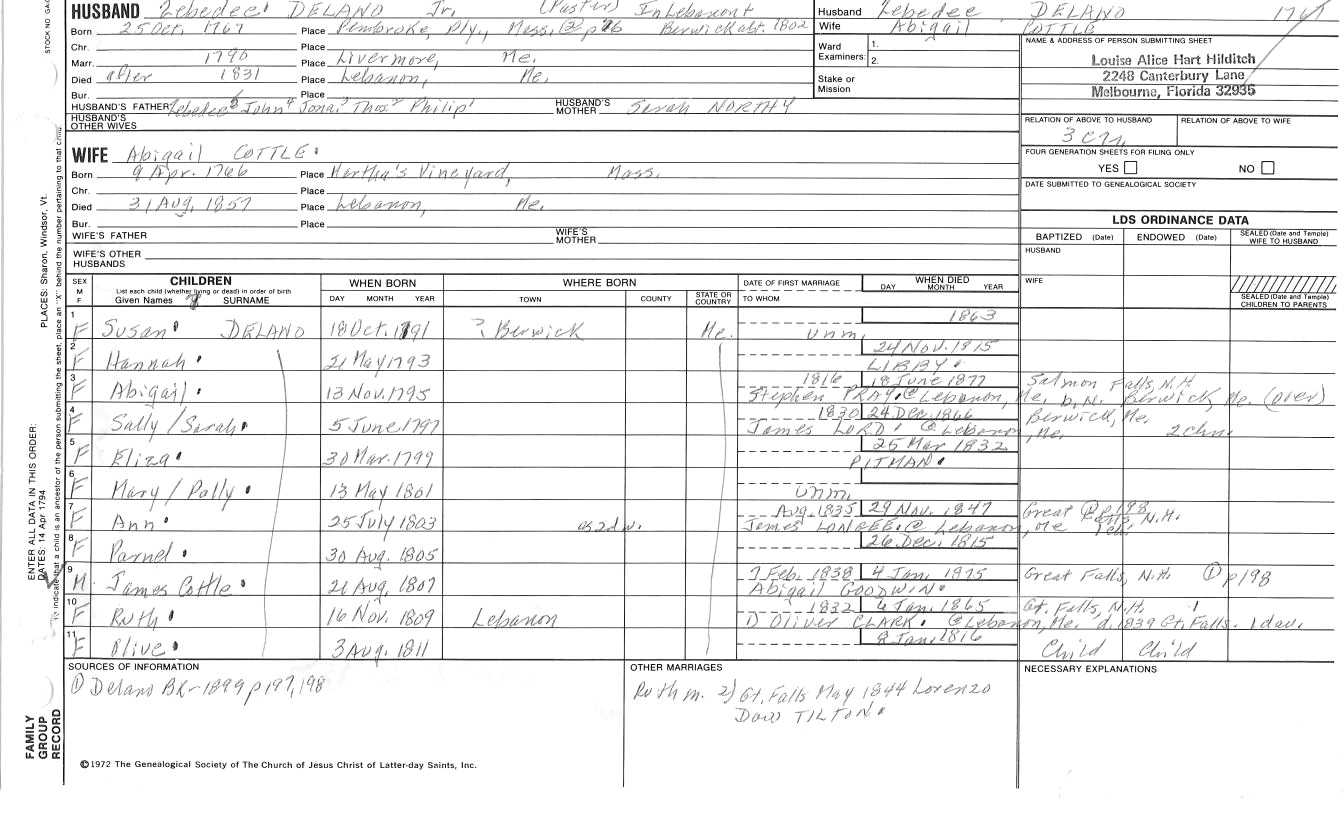 STOCK NO
HUSBAND Zebedee DELANO Jr. (Pastor) In Lebanon
Husband Zebedee DELANO 1767
Born 25 Oct. 1767 Place Pembroke, Ply., Mass. Berwick abt. 1802
Wife Abigail COTTLE
Chr. Place
Ward Examiners: 1. 2.
NAME & ADDRESS OF PERSON SUBMITTING SHEET
Louise Alice Hart Hilditch
2248 Canterbury Lane
Melbourne, Florida 32935
Marr. 1790 Place Livermore, Me.
Died after 1831 Place Lebanon, Me.
Stake or Mission
Bur. Place
HUSBAND'S FATHER Zebedee John Jona Thos Philip
HUSBAND'S MOTHER Sarah NORTHY
HUSBAND'S OTHER WIVES
RELATION OF ABOVE TO HUSBAND
RELATION OF ABOVE TO WIFE
WIFE Abigail COTTLE
FOUR GENERATION SHEETS FOR FILING ONLY
YES NO
Born 9 Apr. 1766 Place Martha's Vineyard, Mass.
Chr. Place
DATE SUBMITTED TO GENEALOGICAL SOCIETY
Died 31 Aug, 1857 Place Lebanon, Me.
Bur. Place
LDS ORDINANCE DATA
WIFE'S FATHER
WIFE'S MOTHER
BAPTIZED (Date) ENDOWED (Date) SEALED (Date and Temple) WIFE TO HUSBAND
WIFE'S OTHER HUSBANDS
HUSBAND
SEX M F
CHILDREN
List each child (whether living or dead) in order of birth
Given Names SURNAME
WHEN BORN
DAY MONTH YEAR
WHERE BORN
TOWN COUNTY STATE OR COUNTRY
DATE OF FIRST MARRIAGE
TO WHOM
WHEN DIED
DAY MONTH YEAR
WIFE
SEALED (Date and Temple) CHILDREN TO PARENTS
1 F Susan DELANO 18 Oct. 1791 ? Berwick Me. Unm. 1863
2 F Hannah 21 May 1793 24 Nov. 1815
LIBBY
3 F Abigail 13 Nov. 1795 1816 18 June 1877 Salmon Falls, N.H.
Stephen PRAY @ Lebanon, Me. b. N. Berwick, Me. (over)
4 F Sally/Sarah 5 June 1797 1830 24 Dec. 1866 Berwick, Me.
James LORD @ Lebanon, Me. 2 chn.
5 F Eliza 30 Mar. 1799 25 Mar 1832
PITMAN
6 F Mary/Polly 13 May 1801 Unm.
7 F Ann 25 July 1803 as 2d w. Aug. 1835 29 Nov. 1847 Great Falls, N.H. p198
James @ Lebanon, Me
8 F Parnel 30 Aug. 1805 26 Dec. 1815
9 M James Cottle 21 Aug, 1807 7 Feb. 1838 4 Jan, 1875 Great Falls, N.H. ① p198
Abigail GOODWIN
10 F Ruth 16 Nov. 1809 Lebanon 1832 4 Jan. 1865 Gt. Falls, N.H.
D Oliver CLARK @ Lebanon, Me. d. 1839 Gt. Falls. 1 dau.
11 F Olive 3 Aug. 1811 8 Jan, 1816 Child Child
SOURCES OF INFORMATION
① Delano BK - 1899 p197, 198
OTHER MARRIAGES
Ruth m. 2) Gt. Falls May 1844 Lorenzo
Dow TILTON
NECESSARY EXPLANATIONS
©1972 The Genealogical Society of The Church of Jesus Christ of Latter-day Saints, Inc.
FAMILY GROUP RECORD
ENTER ALL DATA IN THIS ORDER:
DATES: 14 Apr 1794
PLACES: Sharon, Windsor, Vt.
To indicate that a child is an ancestor of the person submitting the sheet, place an "X" behind the number pertaining to that child.